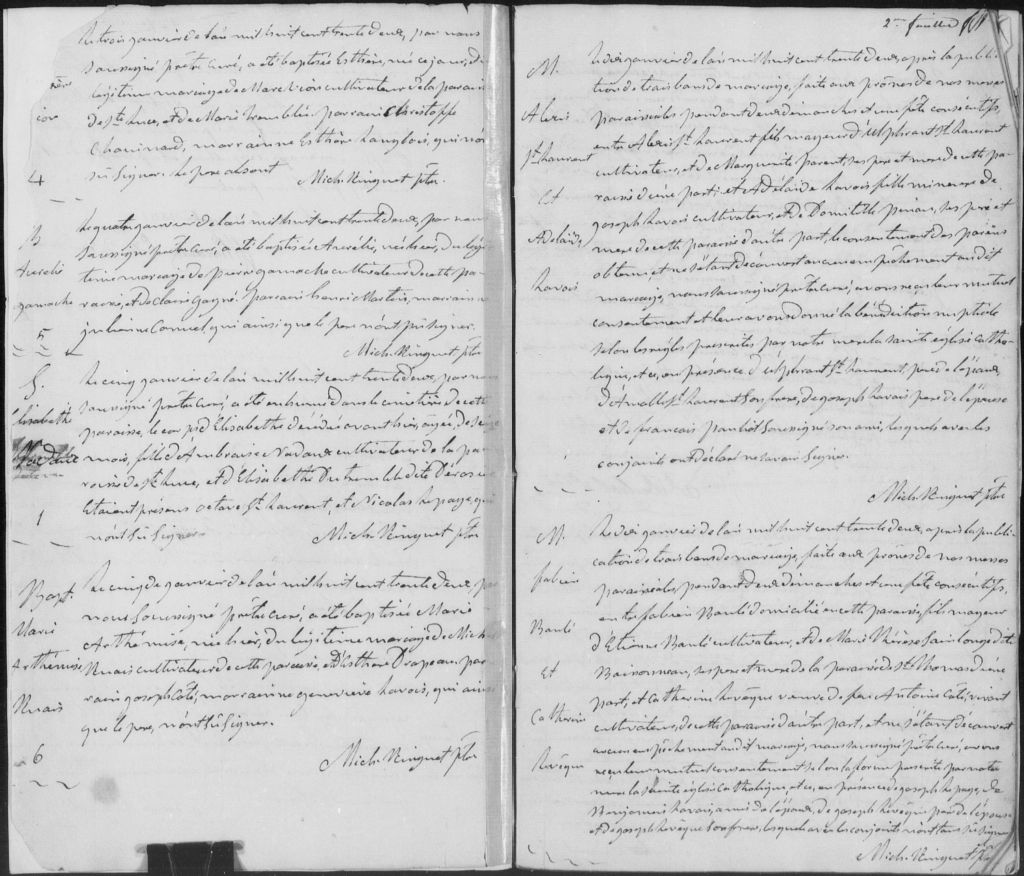 Le trois janvier de l'an mil huit cent trente deux, par nous
soussigné prêtre curé, a été baptisée Esther, née ce jour, du
légitime mariage de Marc cultivateur de la paroisse
de Ste Luce, et de Marie Tremblé. parrain Christophe
Chouinard, marraine Esther Langlois, qui n'ont
sû signer. le pere absent
Mich. Ringuet ptre
4
B
Aurelie
gamache
5
Le quatre janvier de l'an mil huit cent trente deux, par nous
soussigné prêtre curé, a été baptisée Aurélie, née hier, du légi
time mariage de pierre gamache cultivateur de cette pa-
roisse, et de Claire Gagné. Parrain henri Martin, marraine
julienne Canuel qui ainsi que le pere n'ont pû signer.
Mich. Ringuet ptre
S.
élisabethe
1
Le cinq janvier de l'an mil huit cent trente deux, par nous
soussigné prêtre curé, a été inhumé dans le cimetière de cette
paroisse, le corps d'Elisabethe décédée avant hier, agée de seize
mois, fille d'Ambroise cultivateur de la pa-
roisse de Ste Luce, et d'Elisabethe Dutremble dite Dérosier
Etaient présens octave St. Laurent, et Nicolas Lepage, qui
n'ont sû signer
Mich. Ringuet ptre
Bapt.
Marie
Arthemise
Ruais
6
Le cinq de janvier de l'an mil huit cent trente deux, par
nous soussigné prêtre curé, a été baptisée Marie
Arthémise, née hier, du légitime mariage de Michel
Ruais cultivateur de cette paroisse, et d'Esthere Drapeau. par-
rain joseph Coté, marraine genevieve Lavois, qui ainsi
que le pere, n'ont sû signer.
Mich. Ringuet ptre
2me feuille
M.
Alexis
St. Laurent
Et
Adelaide
Lavois
Le dix janvier de l'an mil huit cent trente deux, après la publi-
cation de trois bans de mariage, faite aux prônes de nos messes
paroissiales pendant deux dimanches et une fête consécutifs,
entre Alexis St. Laurent fils mageur d'Elphrant St. Laurent
cultivateur, et de Marguerite parent, ses pere et mere de cette pa-
roisse d'une part; et Adélaide Lavois fille mineure de
joseph Lavois cultivateur, et de Domitille pineau, ses pere et
mere de cette paroisse d'autre part, le consentement des parens
obtenu, et ne s'étant découvert aucun empêchement au dit
mariage, nous soussigné prêtre curé, avons reçu leur mutuel
consentement et leur avons donné la bénédiction nuptiale
selon les règles prescrites par notre mere la sainte église catho-
lique, et ce, en présence d'Elphrant St. Laurent, pere de l'époux,
d'Amable St. Laurent son frere, de joseph Lavois pere de l'épouse
et de francois pauliot soussigné son ami, lesquels avec les
conjoints ont déclaré ne savoir signer.
Mich. Ringuet ptre
M.
fabien
Banlé
Et
Catherine
Levêque
Le dix janvier de l'an mil huit cent trente deux, après la publi-
cation de trois bans de mariage, faite aux prônes de nos messes
paroissiales, pendant deux dimanches et une fête consécutifs,
entre fabien Banlé domicilié en cette paroisse, fils mageur
d'Etienne Banlé cultivateur, et de Marie Thérèse Sainlonge dite
ses pere et mere de la paroisse de St. Thomas d'une
part; et Catherine Levêque veuve de feu Antoine Coté, vivant
cultivateur, de cette paroisse d'autre part, et ne s'étant découvert
aucun empêchement au dit mariage, nous soussigné prêtre curé, avons
reçu leur mutuel consentement selon la forme prescrite par notre
mere la Sainte église Catholique, et ce, en présence de joseph Lepage, de
Benjamin Lavois, amis de l'époux, de joseph Levêque pere de l'épouse
et de joseph Levêque son frere, lesquels avec les conjoints n'ont sû signer
Mich. Ringuet ptre